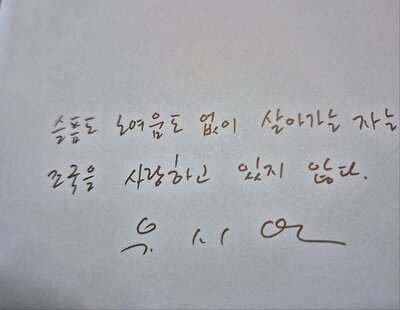 슬픔도 노여움도 없이 살아가는 자는
조국을 사랑하고 있지 않다.
유시민